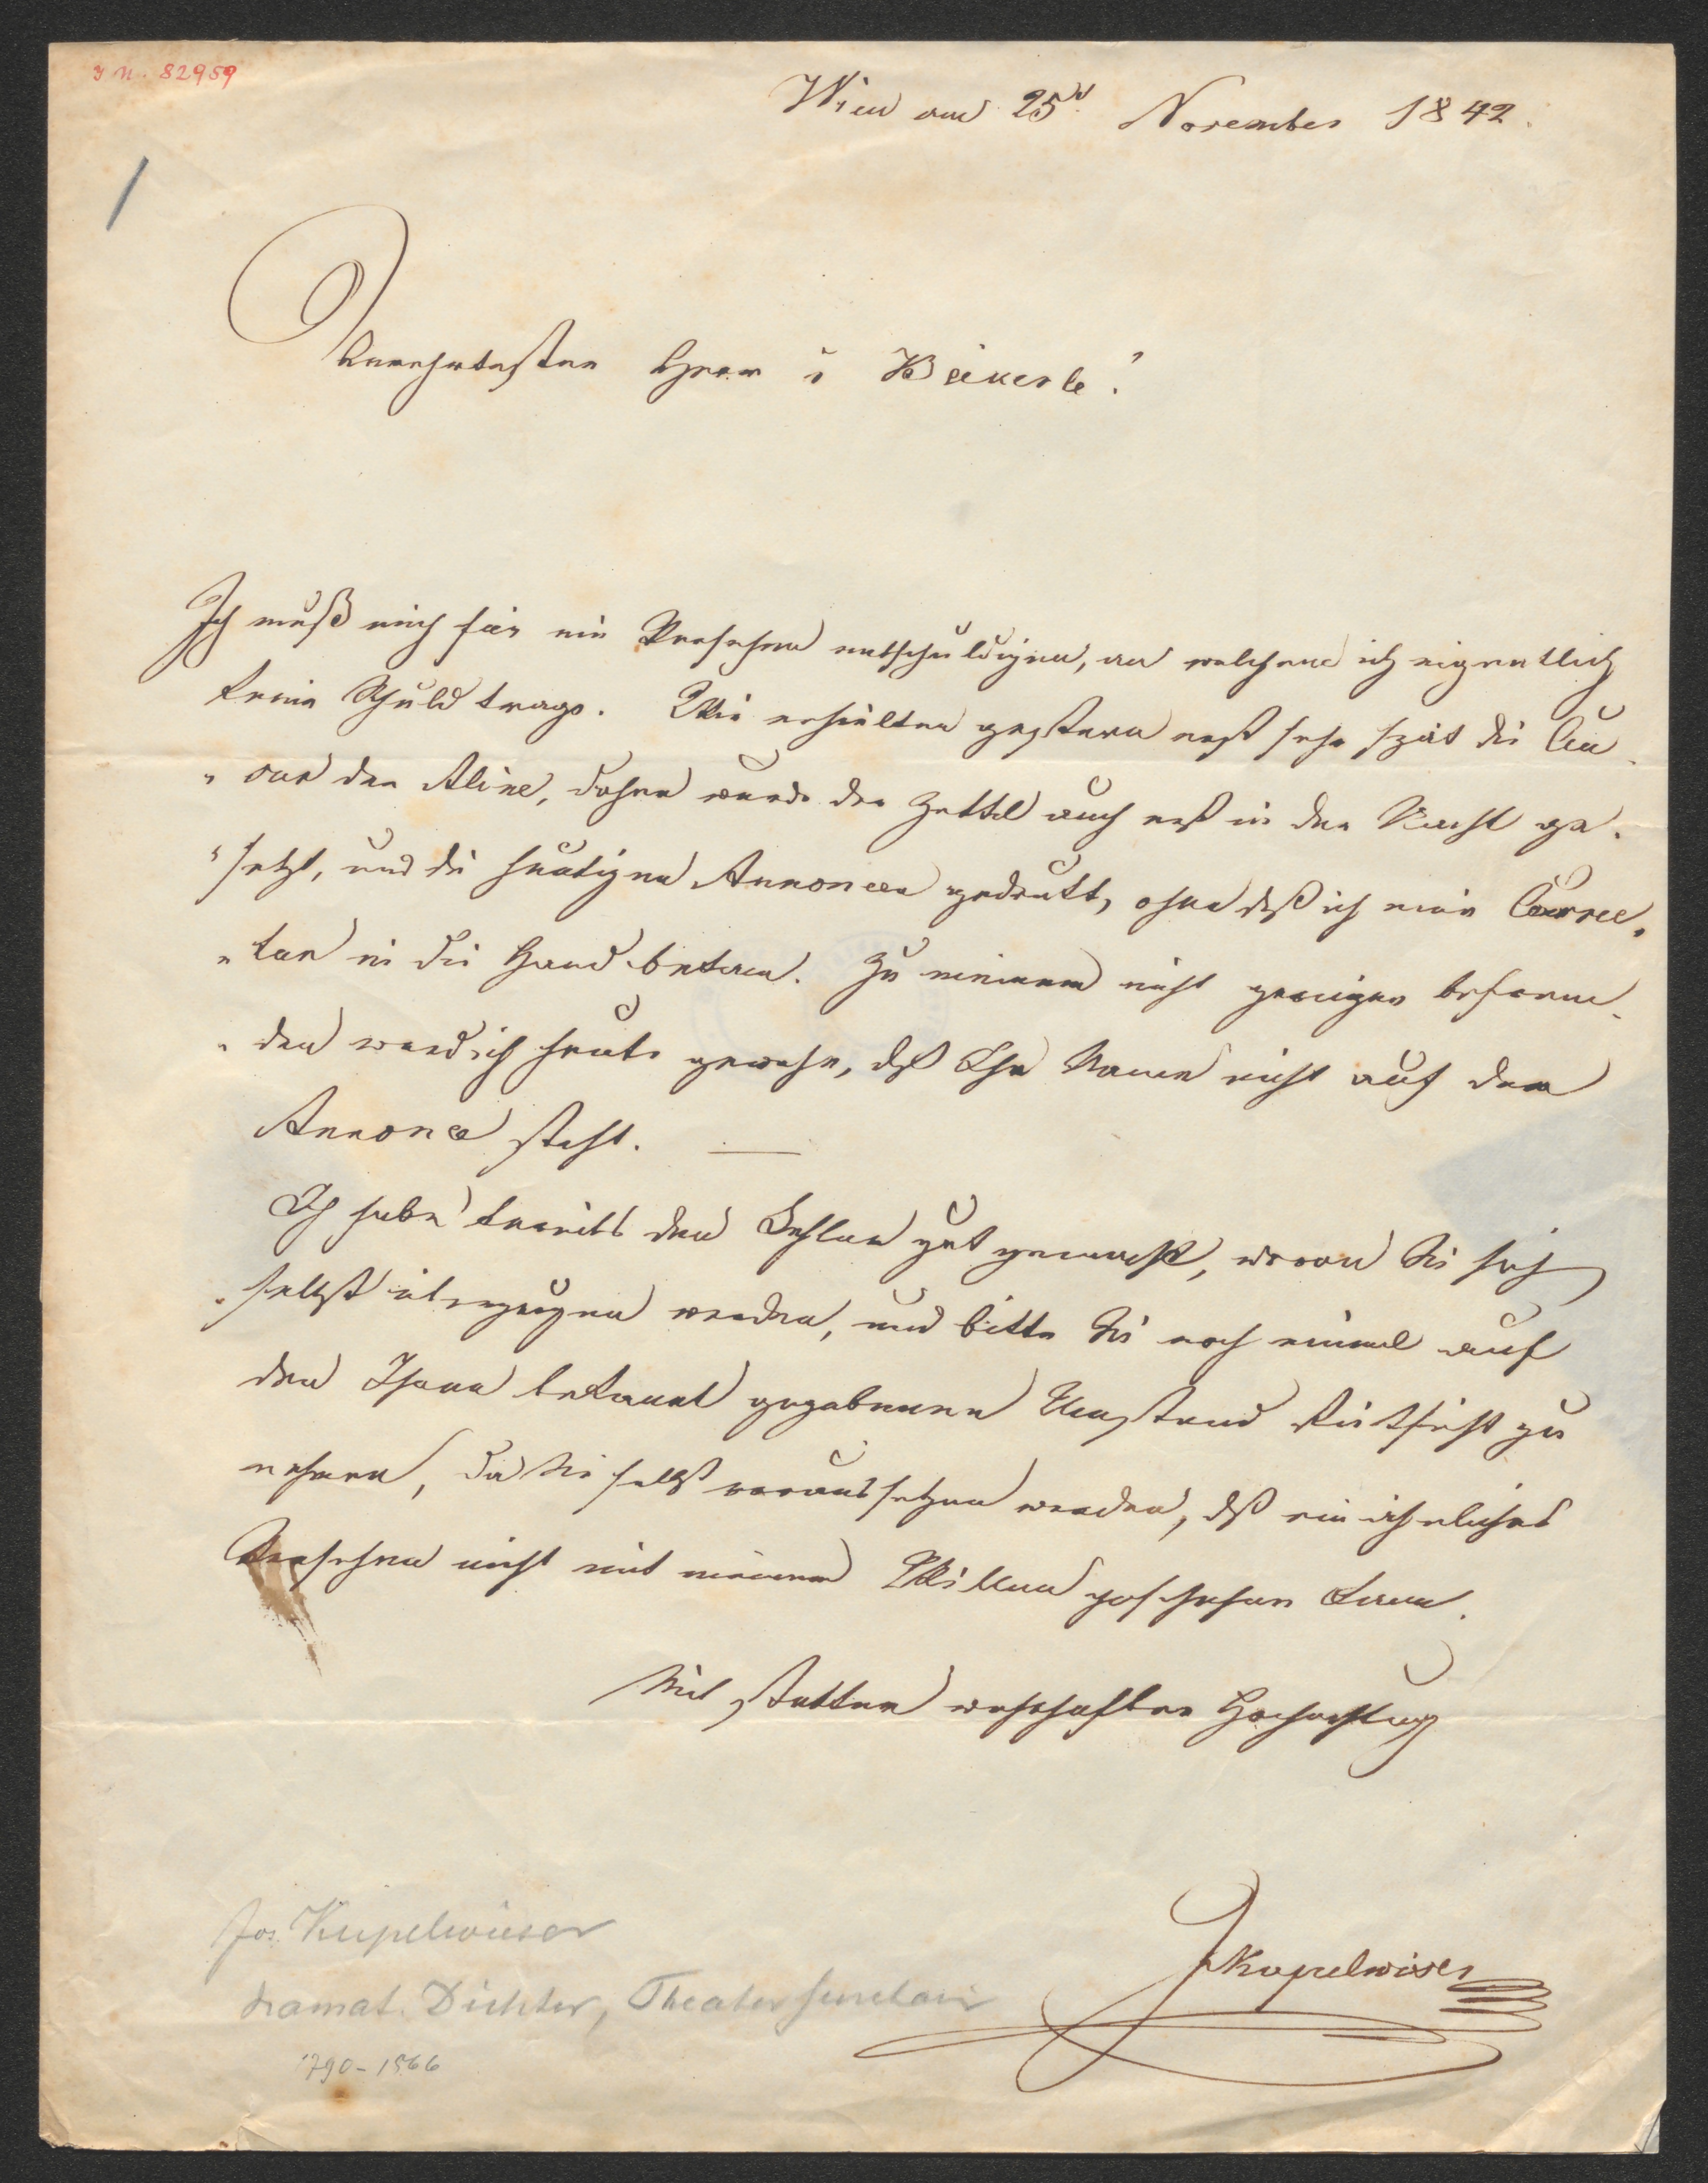 I N. 82959
Wien am 25t. November 1842.
Verehrtester Herr v Bäuerle!
Ich muß mich für ein Versehen entschuldigen, an welchem ich eigentlich
keine Schuld trage. Wir erhielten gestern erst sehr spät die
der Aline, daher wurde der Zettel auch erst in der Nacht ge-
"setzt, und die heutigen Annoncen gedruckt, ohne daß ich eine Correc-
"tur in die Hand bekam. Zu meinem nicht geringen befrem-
"den ward ich heute gewahr, daß Ihr Namen nicht auf der
Annonce steht. —
Ich habe bereits den Fehler gut gemacht, wovon Sie sich
selbst überzeugen werden, und bitte Sie noch einmal auf
den Ihnen bekannt gegebenen Umstand Rücksicht zu
nehmen, da Sie selbst voraussetzen werden, daß ein ähnliches
Versehen nicht mit meinem Willen geschehen kann.
Mit steter wahrhafter Hochachtung
JKupelwieser
Jos. Kupelwieser
dramat. Dichter, Theatersecretair
1790-1866